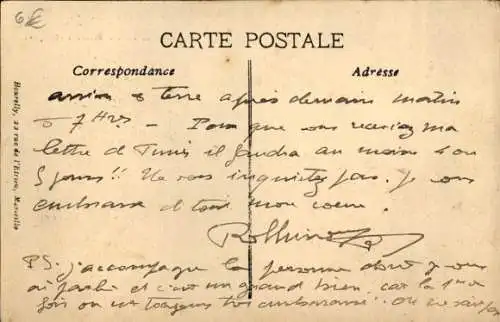 6 €
CARTE POSTALE
Correspondance
Adresse
à terre après demain matin
à 7 Hrs - Pour que vous receviez ma
lettre de Tunis il faudra au moins 4 ou
5 jours!! Ne vous inquiétez pas. Je vous
embrasse de tout mon coeur.
PS. J'accompagne la personne dont je vous
ai parlé et c'est un grand bien, car la 1ère
fois on est toujours embarrassé.
rue de l'Étrieu, Marseille